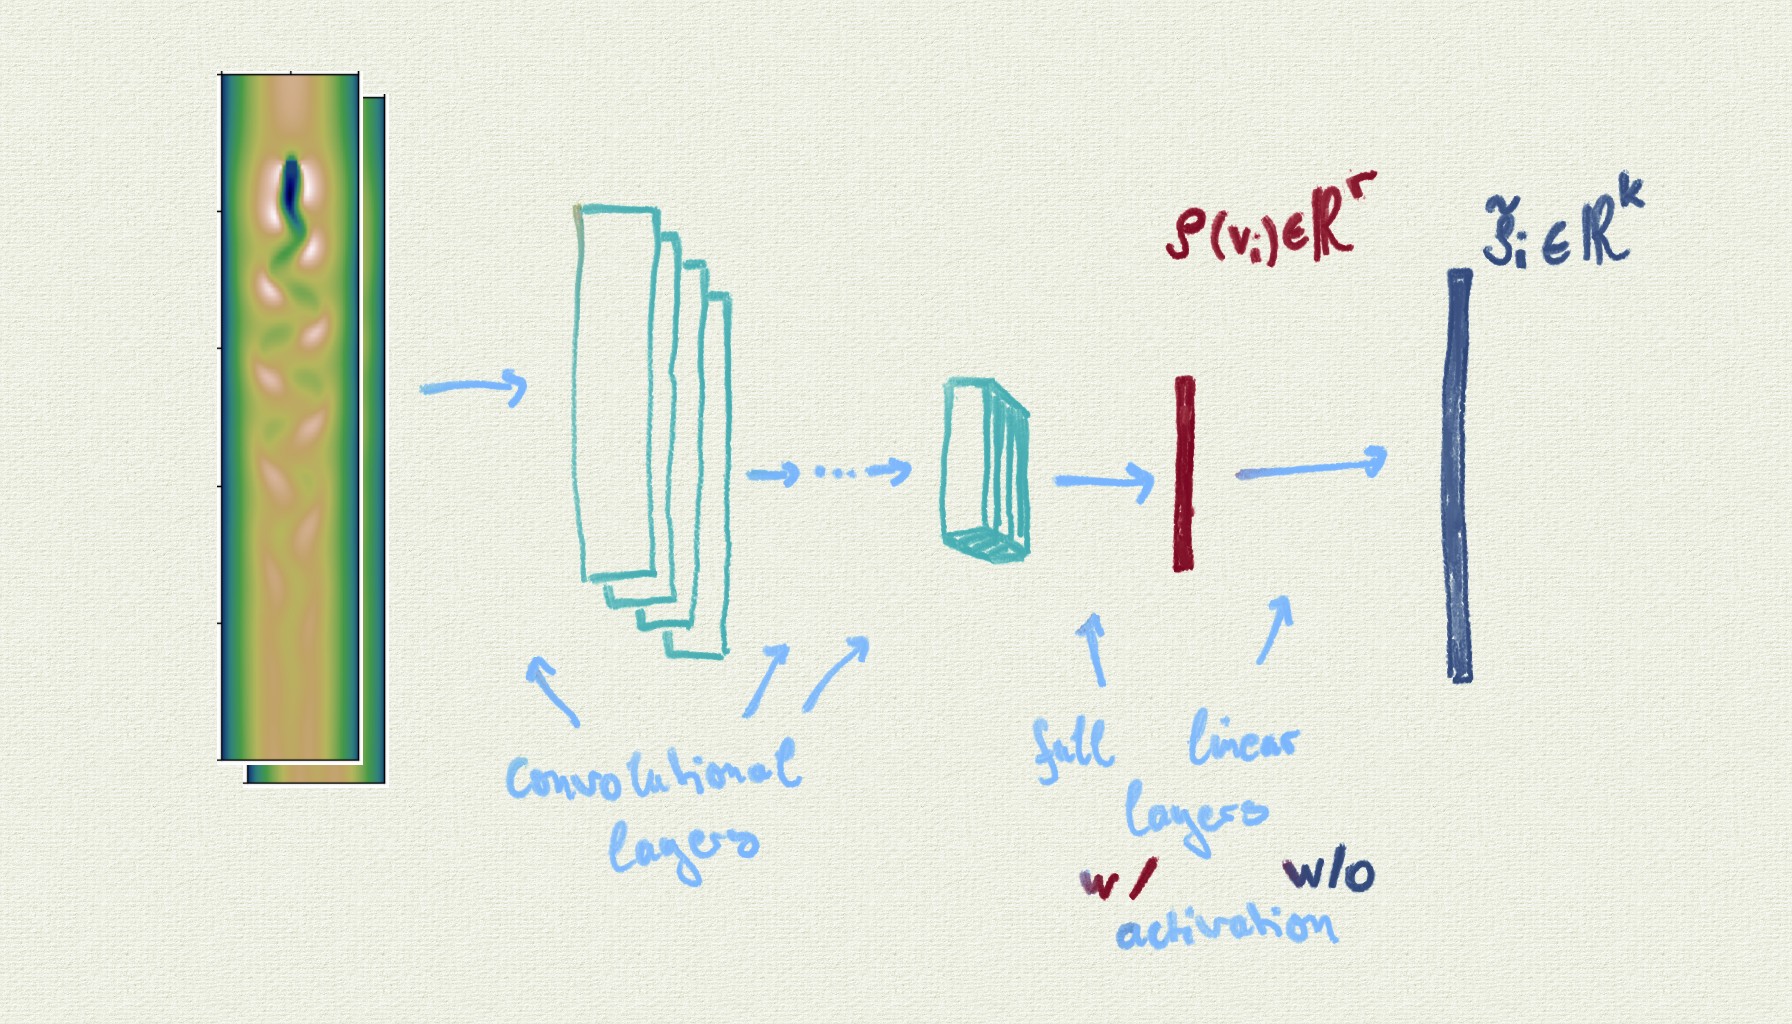 ρ(vᵢ)∈ℝʳ
ỹᵢ∈ℝᵏ
Convolutional
layers
full linear
layers
w/ w/o
activation